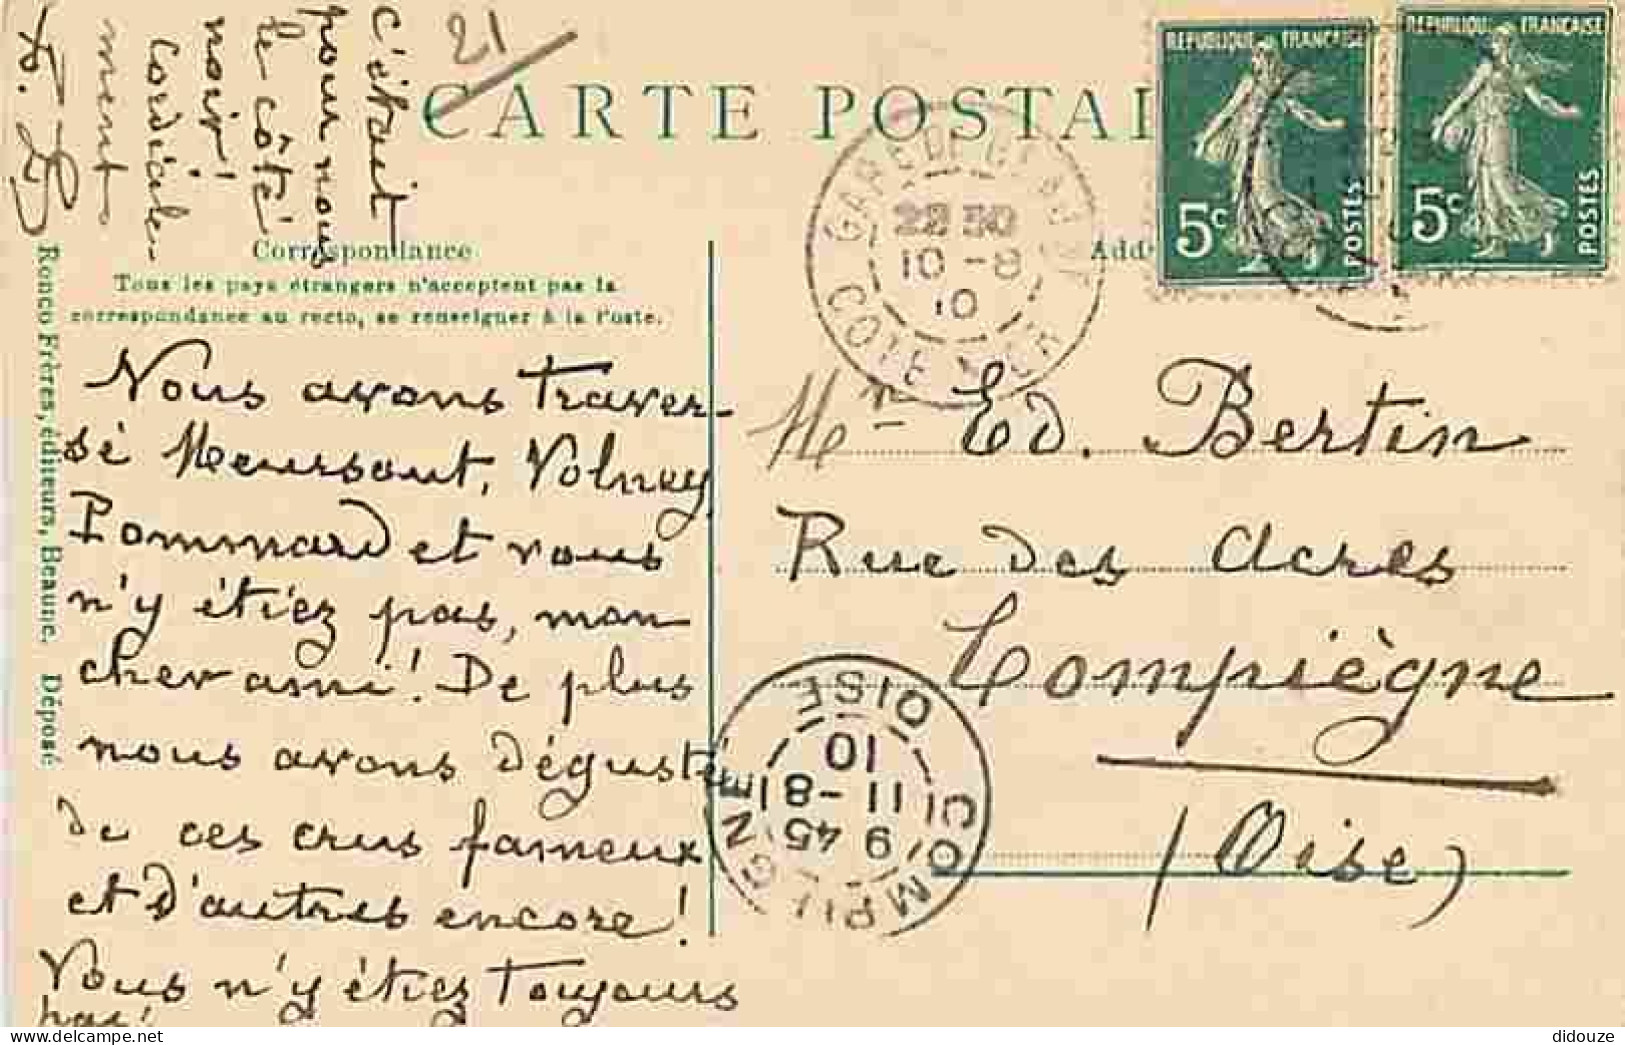 21
CARTE POSTAL
RÉPUBLIQUE FRANÇAISE
5c
POSTES
RÉPUBLIQUE FRANÇAISE
5c
POSTES
22 30
10 - 8
10
COTE D'OR
Correspondance
Add
Tous les pays étrangers n'acceptent pas la
correspondance au recto, se renseigner à la Poste.
Ronco Frères, éditeurs, Beaune. Déposé
Nous avons traver-
sé Meursaut, Volnay
Pommard et vous
n'y étiez pas, mon
cher ami! De plus
nous avons dégusté
de ces crus fameux
et d'autres encore!
Vous n'y étiez toujours
pas!
c'était
pour nous
le côté
noir!
Cordiale-
ment
Mr Ed. Bertin
Rue des Acres
Compiègne
(Oise)
COMPIEGNE
OISE
9 45
11 - 8
10
didouze